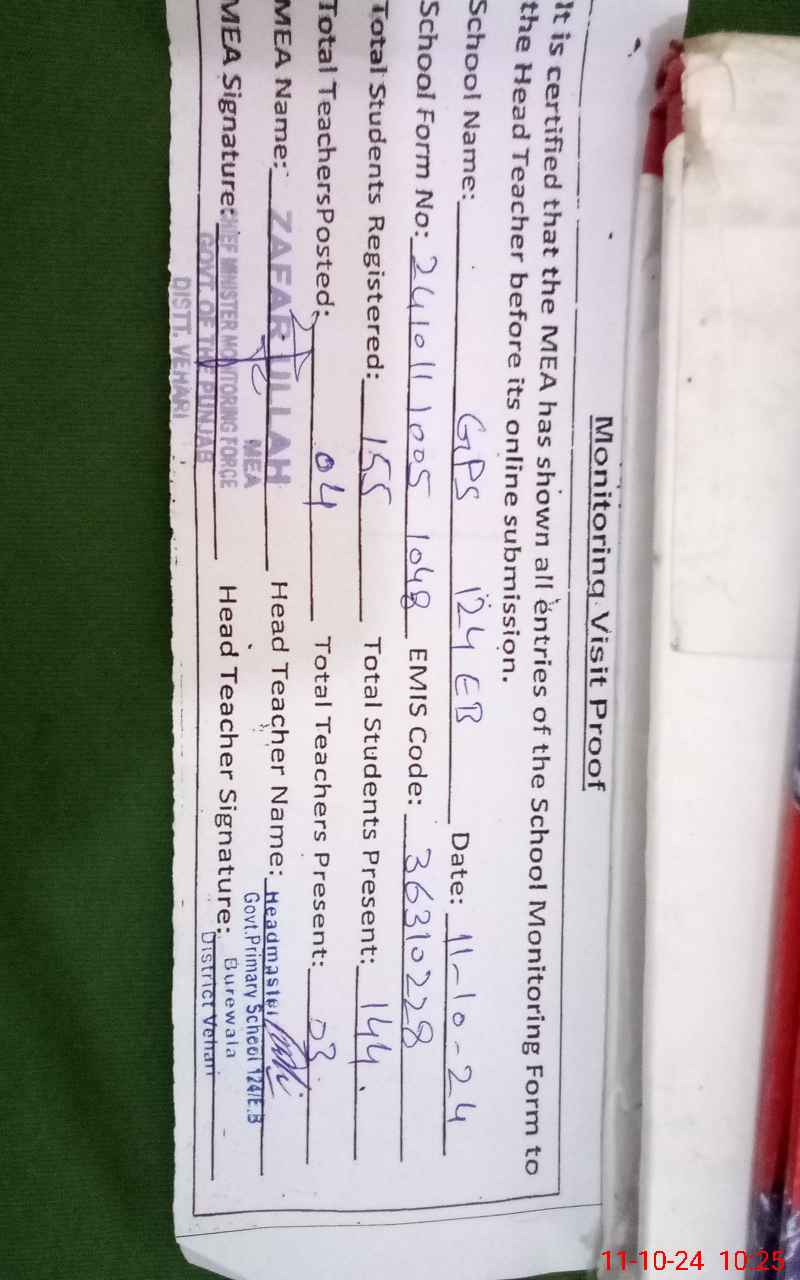 Monitoring Visit Proof
It is certified that the MEA has shown all entries of the School Monitoring Form to
the Head Teacher before its online submission.
School Name: GPS 124 EB Date: 11-10-24
School Form No: 241011 1005 1048 EMIS Code: 36310228
Total Students Registered: 155 Total Students Present: 144
Total TeachersPosted: 04 Total Teachers Present: 03
MEA Name: ZAFAR ULLAH Head Teacher Name: Headmaster
MEA Govt.Primary School 124/E.B
MEA Signature: CHIEF MINISTER MONITORING FORCE Head Teacher Signature: Burewala
GOVT. OF THE PUNJAB District Vehari
DISTT. VEHARI
11-10-24 10:25